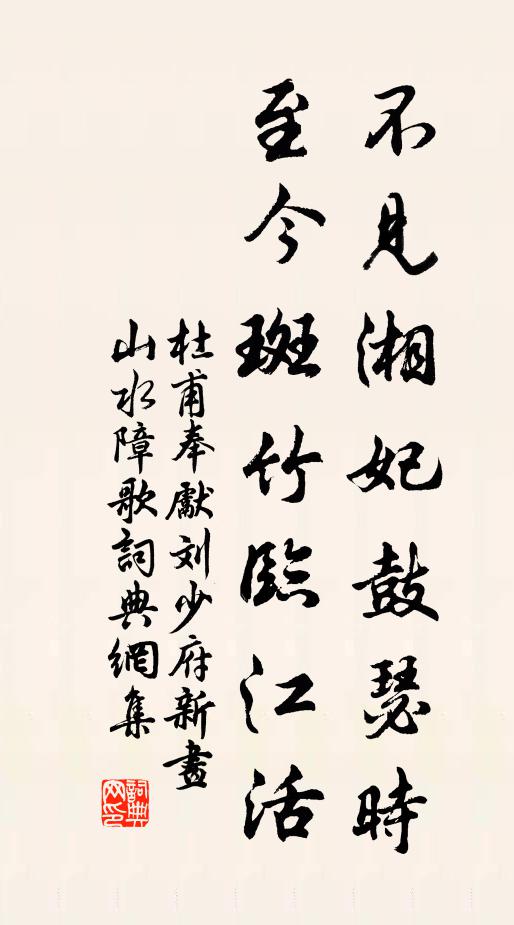 不見湘妃鼓瑟時
至今斑竹臨江活
杜甫奉獻刘少府新畫
山水障歌詞典網集
詞典
网印